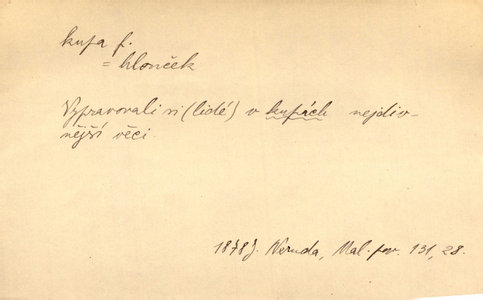 kupa f.
= hlouček
Vypravovali si (lidé) v kupách nejdiv-
nější věci.
1878 J. Neruda, Mal. pov. 131, 28.